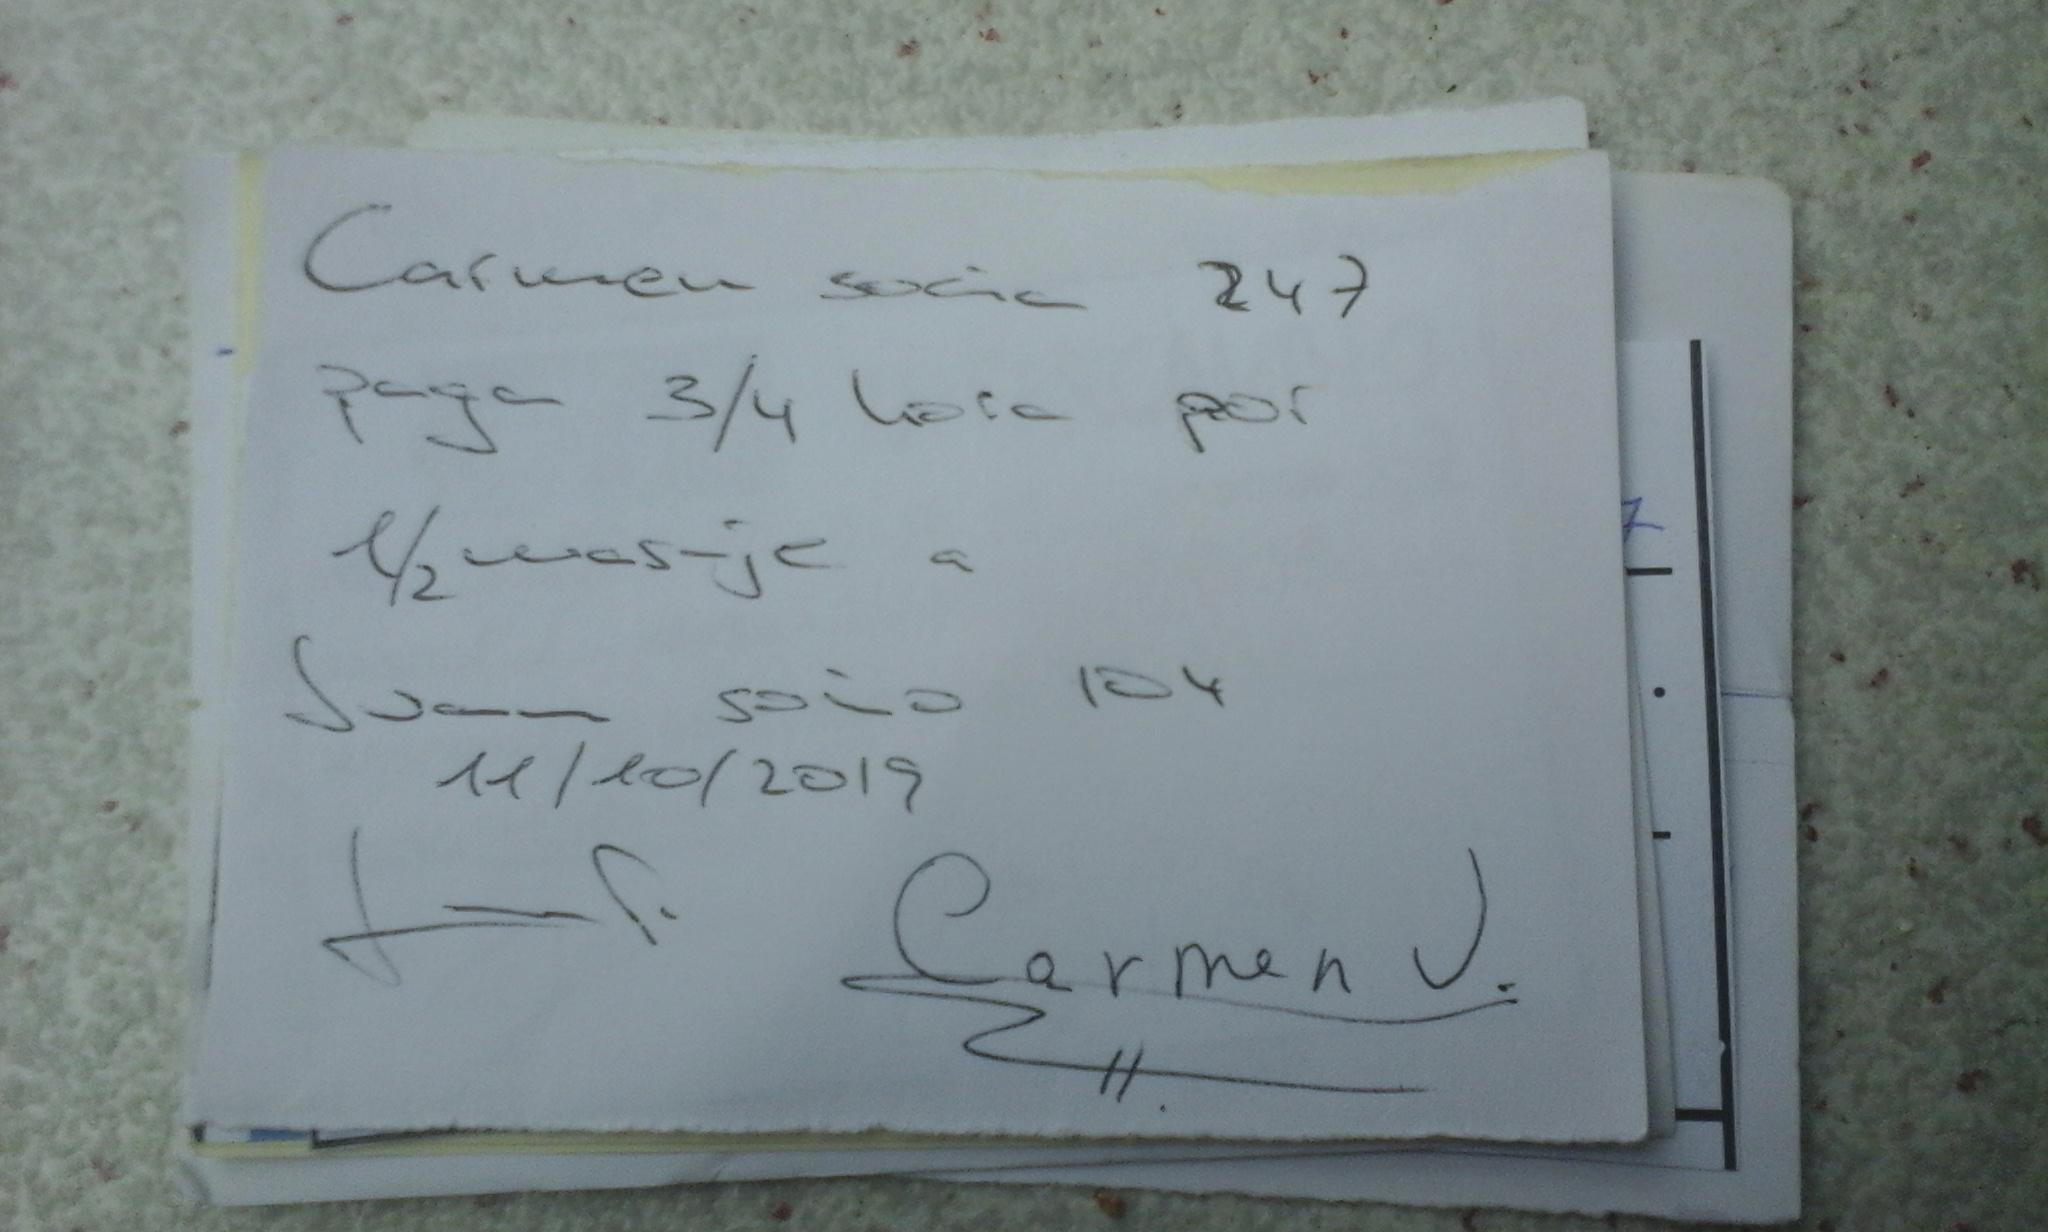 Carmen socia 247
paga 3/4 hora por
1/2 masaje a
Juan socio 104
11/10/2019
Carmen V.
7